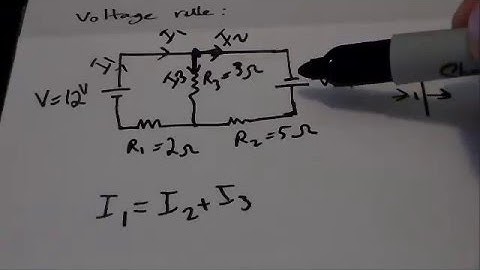 Voltage rule:
I1 I2
I1 I3 R3=3Ω
V=12V
R1=2Ω R2=5Ω
I1=I2+I3